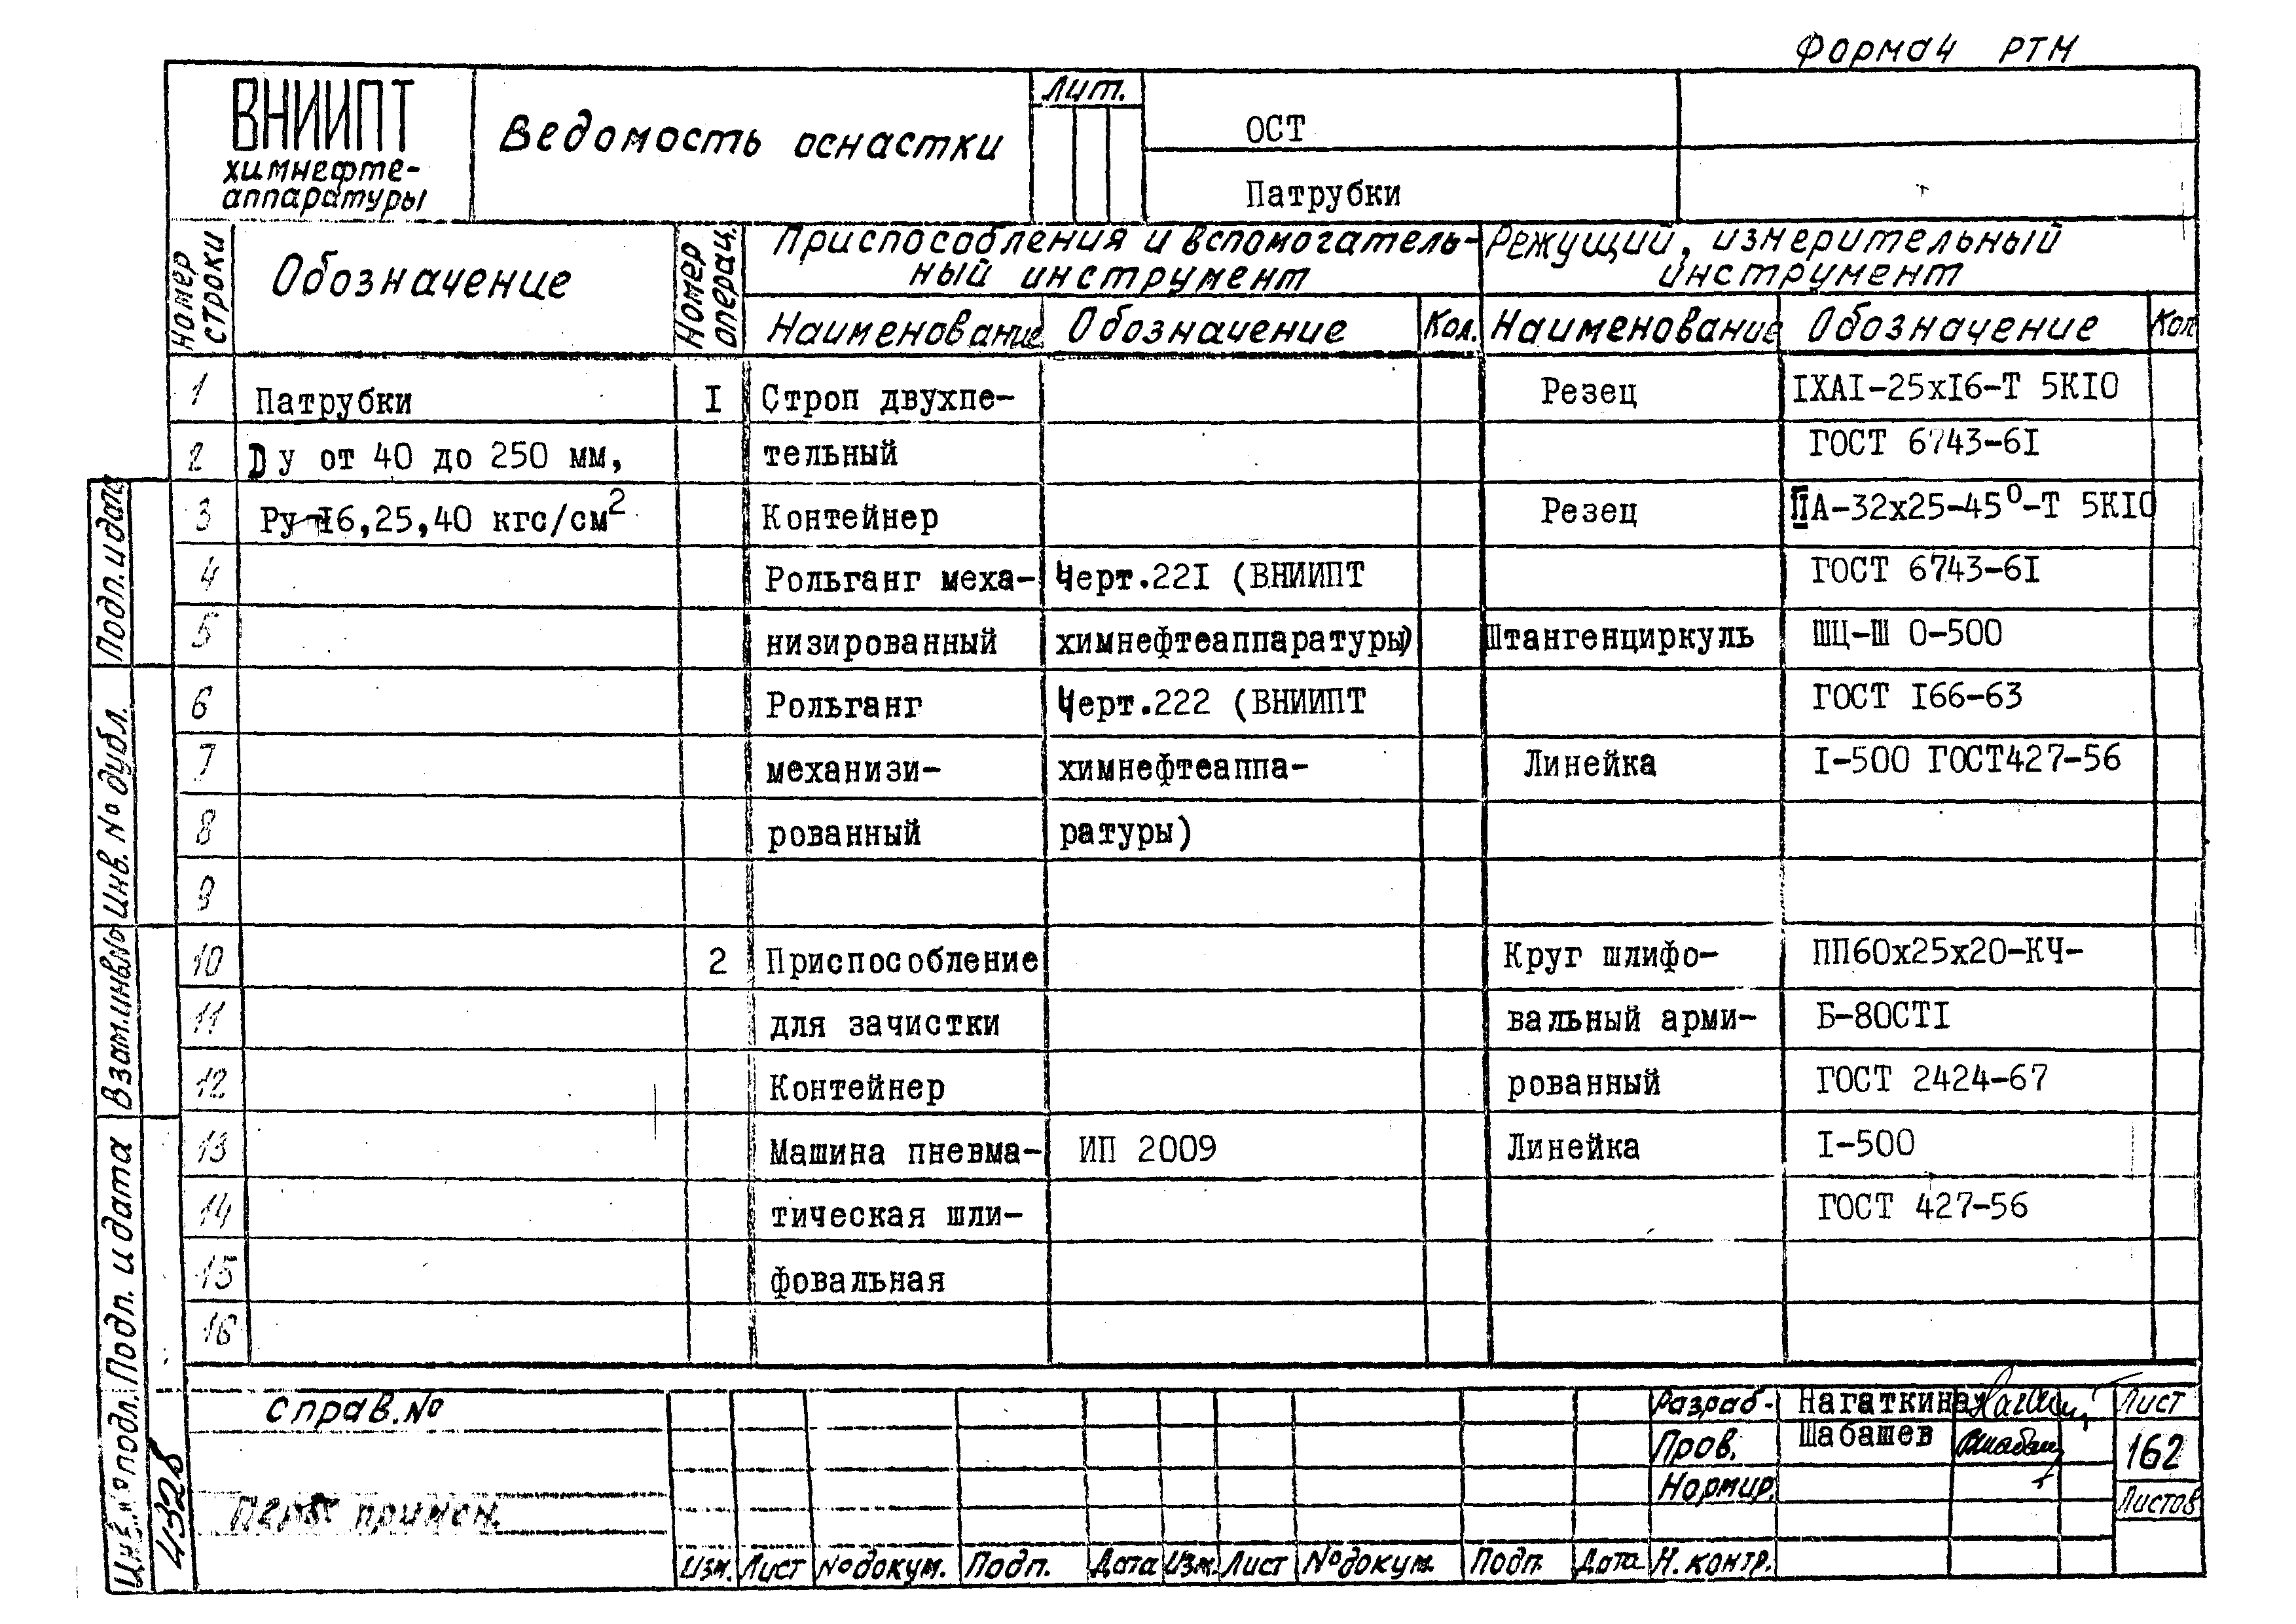 Форма 4 РТМ
ВНИИПТ
химнефте-
аппаратуры
Ведомость оснастки
Лит.
ОСТ
Патрубки
Номер строки
Обозначение
Номер операц.
Приспособления и вспомогатель-
ный инструмент
Режущий, измерительный
инструмент
Наименование Обозначение Кол. Наименование Обозначение Кол
1 Патрубки I Строп двухпе- Резец IХАI-25х16-Т 5К10
2 Dу от 40 до 250 мм, тельный ГОСТ 6743-6I
3 Ру-I6,25,40 кгс/см² Контейнер Резец ПА-32х25-45⁰-Т 5КIО
4 Рольганг меха- Черт.22I (ВНИИПТ ГОСТ 6743-6I
5 низированный химнефтеаппаратуры) Штангенциркуль ШЦ-Ш 0-500
6 Рольганг Черт.222 (ВНИИПТ ГОСТ I66-63
7 механизи- химнефтеаппа- Линейка I-500 ГОСТ427-56
8 рованный ратуры)
9
10 2 Приспособление Круг шлифо- ПП60х25х20-КЧ-
11 для зачистки вальный арми- Б-80СТI
12 Контейнер рованный ГОСТ 2424-67
13 Машина пневма- ИП 2009 Линейка I-500
14 тическая шли- ГОСТ 427-56
15 фовальная
16
Подп. и дата
Инв. № дубл.
Взам.инв.№
Подп. и дата
Инв.№ подл.
4328
Справ.№
Перв. примен.
Разраб. Нагаткина Лист
Пров. Шабашев 162
Нормир. Листов
Изм. Лист № докум. Подп. Дата Изм. Лист № докум. Подп. Дата Н. контр.